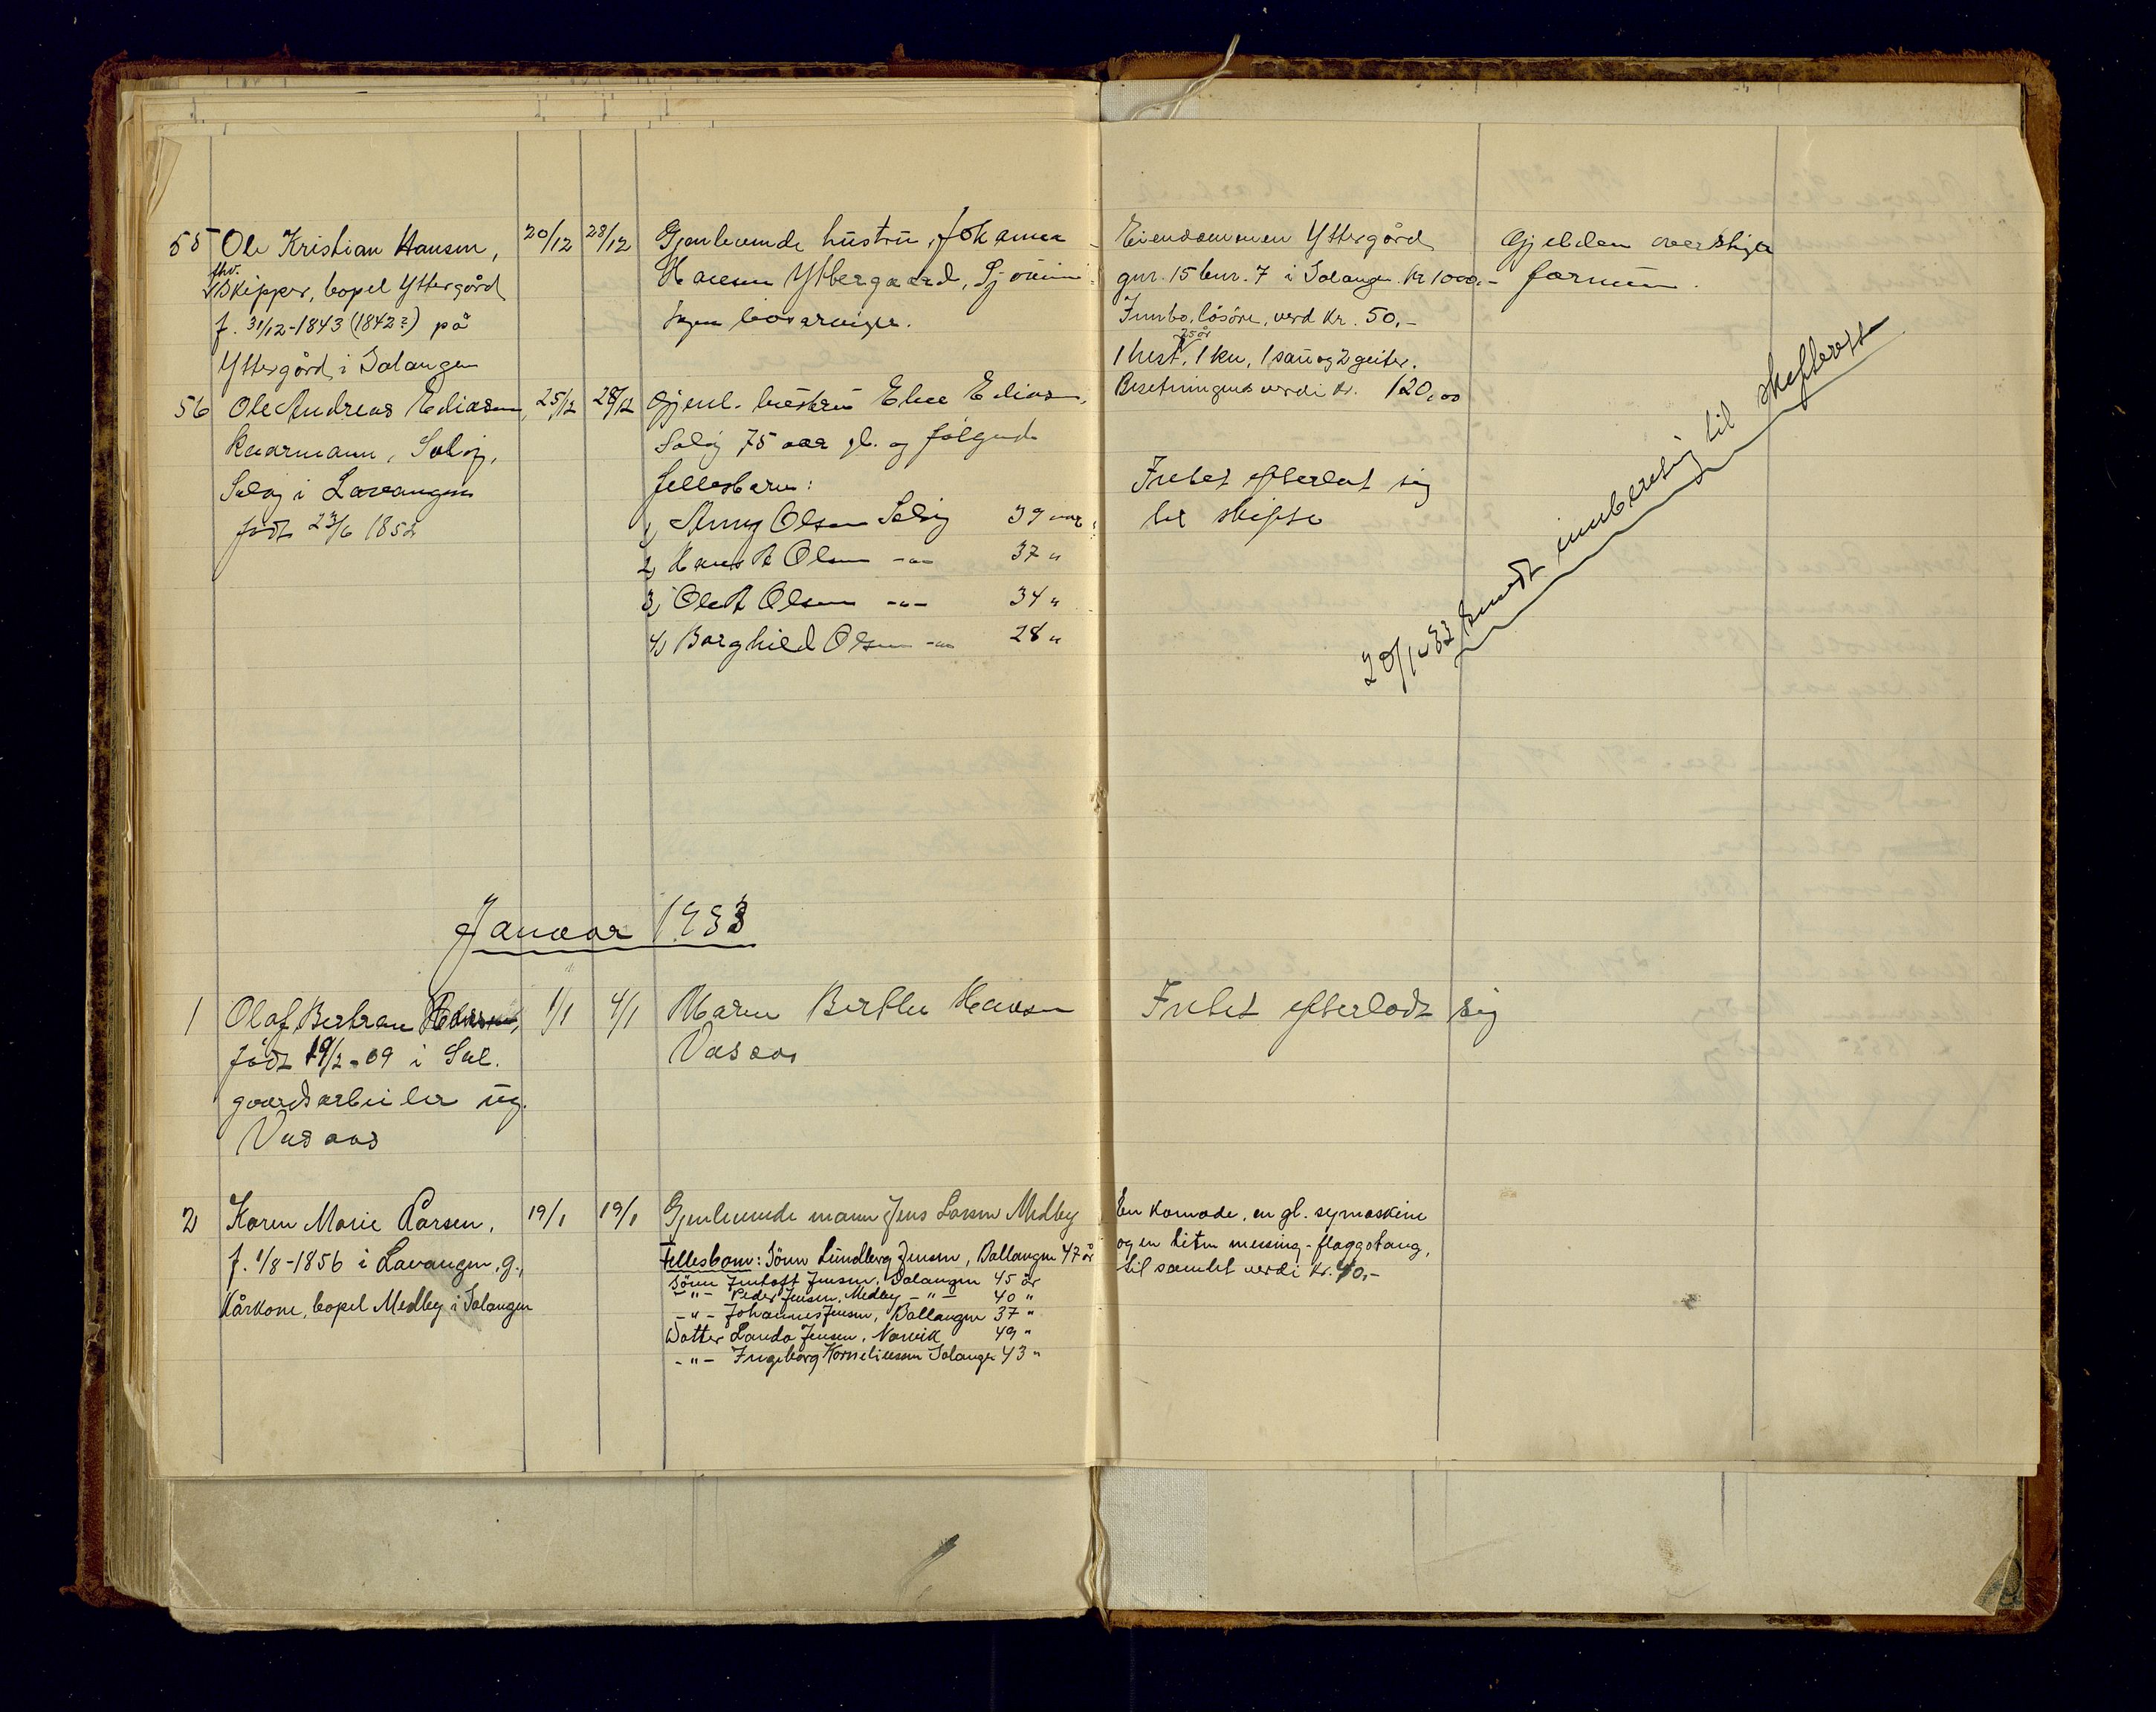 55 Ole Kristian Hansen, 20/12 28/12 Gjenlevende hustru, Johanna Eiendommen Yttergård Gjelden overstiger
fhv. skipper, bopel Yttergård Hansen Yttergaard, Sjøvein gnr. 15 bnr. 7 i Salangen kr 1000,- formuen.
f. 31/12-1843 (1842?) på Ingen livsarvinger. Innbo, løsøre, verd kr. 50,-
Yttergård i Salangen 1 hest 25 år, 1 ku, 1 sau og 2 geiter.
Besetningens verdi kr. 120,00
56 Ole Andreas Eliasen, 25/12 28/12 Gjenl. hustru Eliasen,
kaarmann, Søløy, Søløy 75 aar gl. og følgende
Søløy i Lavangen fellesbarn: Intet efterlat sig
født 23/6 1852 1, Olsen Søløy 39 aar til skifte
2, Hans A Olsen -"- 37 "
3, Ole A Olsen -"- 34 "
4, Borghild Olsen -"- 28 "
20/1-33 sendt innberetnig til skifterett
Januar 1933
1 Olaf Bertran Hansen, 1/1 4/1 Maren Berthe Hansen Intet efterlodt sig
født 19/2-09 i Sal. Vasaas
gaardsarbeider ug.
Vasaas
2 Karen Marie Larsen, 19/1 19/1 Gjenlevende mann Jens Larsen Medby En komode, en gl. symaskine
f. 1/8-1856 i Lavangen, g., Fellesbarn: Sønn Lundberg Jensen, Ballangen 47 år og en liten messing-flaggstang,
Kårkone, bopel Medby i Salangen Sønn Jentoft Jensen, Salangen 45 år til samlet verdi kr. 40,-
-"- Peder Jensen, Medby -"- 40 "
-"- Johannes Jensen, Ballangen 37 "
Datter Landa Jensen, Narvik 49 "
-"- Ingeborg Korneliussen Salangen 43 "